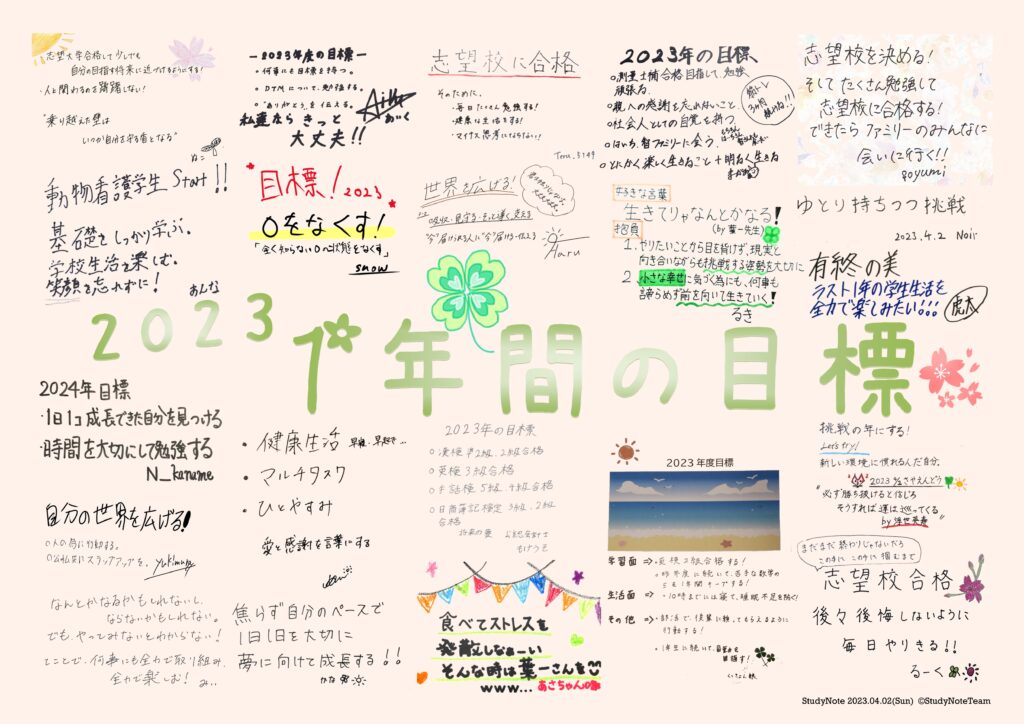 志望大学合格して少しでも
自分の目指す将来に近づけるようにする!
・人と関わるのを躊躇しない!
"乗り越えた壁は
いつか自分を守る盾となる"
ねこ
動物看護学生 Start!!
基礎をしっかり学ぶ。
学校生活を楽しむ。
笑顔を忘れずに!
あんな
-2023年度の目標-
・何事にも目標を持つ。
・DTMについて、勉強する。
・"ありがとう"を伝える。
私達なら きっと
大丈夫!!
目標!2023
0をなくす!
「全く知らない0の状態をなくす」
snow
志望校に合格
そのために、
・毎日たくさん勉強する!
・健康な生活をする!
・マイナス思考にならない!
Teru.5149
世界を広げる!
"今"届け決る人に"今"届け伝える
Haru
2023年の目標
測量士補合格目指して、勉強
頑張る。
親への感謝を忘れないこと。
社会人としての自覚を持つ
はいち、智ファミリーに会う。
とにかく楽しく生きること+明るく生きる
筋トレ
3ヶ月
好きな言葉
生きてりゃなんとかなる!
(by 葉一先生)
抱負
1.やりたいことから目を背けず、現実と
向き合いながらも挑戦する姿勢を大切に
2.小さな幸せに気づく為にも、何事も
諦めず前を向いて生きていく!
るき
志望校を決める!
そして たくさん勉強して
志望校に合格する!
できたら ファミリーのみんなに
会いに行く!!
poyumi
ゆとり持ちつつ挑戦
2023.4.2 Noir
有終の美
ラスト1年の学生生活を
全力で楽しみたい!!!
虎太
2023 1年間の目標
2024年目標
・1日1コ成長できた自分を見つける
・時間を大切にして勉強する
N_kaname
自分の世界を広げる!
○人の為に行動する。
yukimura
なんとかなるかもしれないし、
ならないかもしれない。
でも、やってみないとわからない!
ということで、何事にも全力で取り組み、
全力で楽しむ! み...
・健康生活 早寝・早起き...
・マルチタスク
・ひとやすみ
愛と感謝を言葉にする
焦らず自分のペースで
1日1日を大切に
夢に向けて成長する!!
かな
2023年の目標
○漢検 準2級、2級合格
○英検 3級合格
○手話検 5級、4級合格
○日商簿記検定 3級、2級
合格
将来の夢 公認会計士
食べてストレスを
発散しなぁーい
そんな時は葉一さんを
www...あさちゃん
2023年度目標
学習面 ⇒ ・英検3級合格する!
・昨年度に続いて、苦手な数学の
生活面 ⇒ ・10時までには寝て、睡眠不足を防ぐ!
その他 ⇒ ・部活で、後輩に慕ってもらえるように
行動する!
・1年生に続いて、
目指す!
挑戦の年にする!
Let's try!
新しい環境に慣れるんだ自分。
2023 4/2 さやえんどう
"必ず勝ち抜けると信じろ
そうすれば運は巡ってくる"
まだまだ終わりじゃないだろ
この手に この手に 掴むまで
志望校合格
後々後悔しないように
毎日やりきる!!
るーく
StudyNote 2023.04.02(Sun) ©StudyNoteTeam